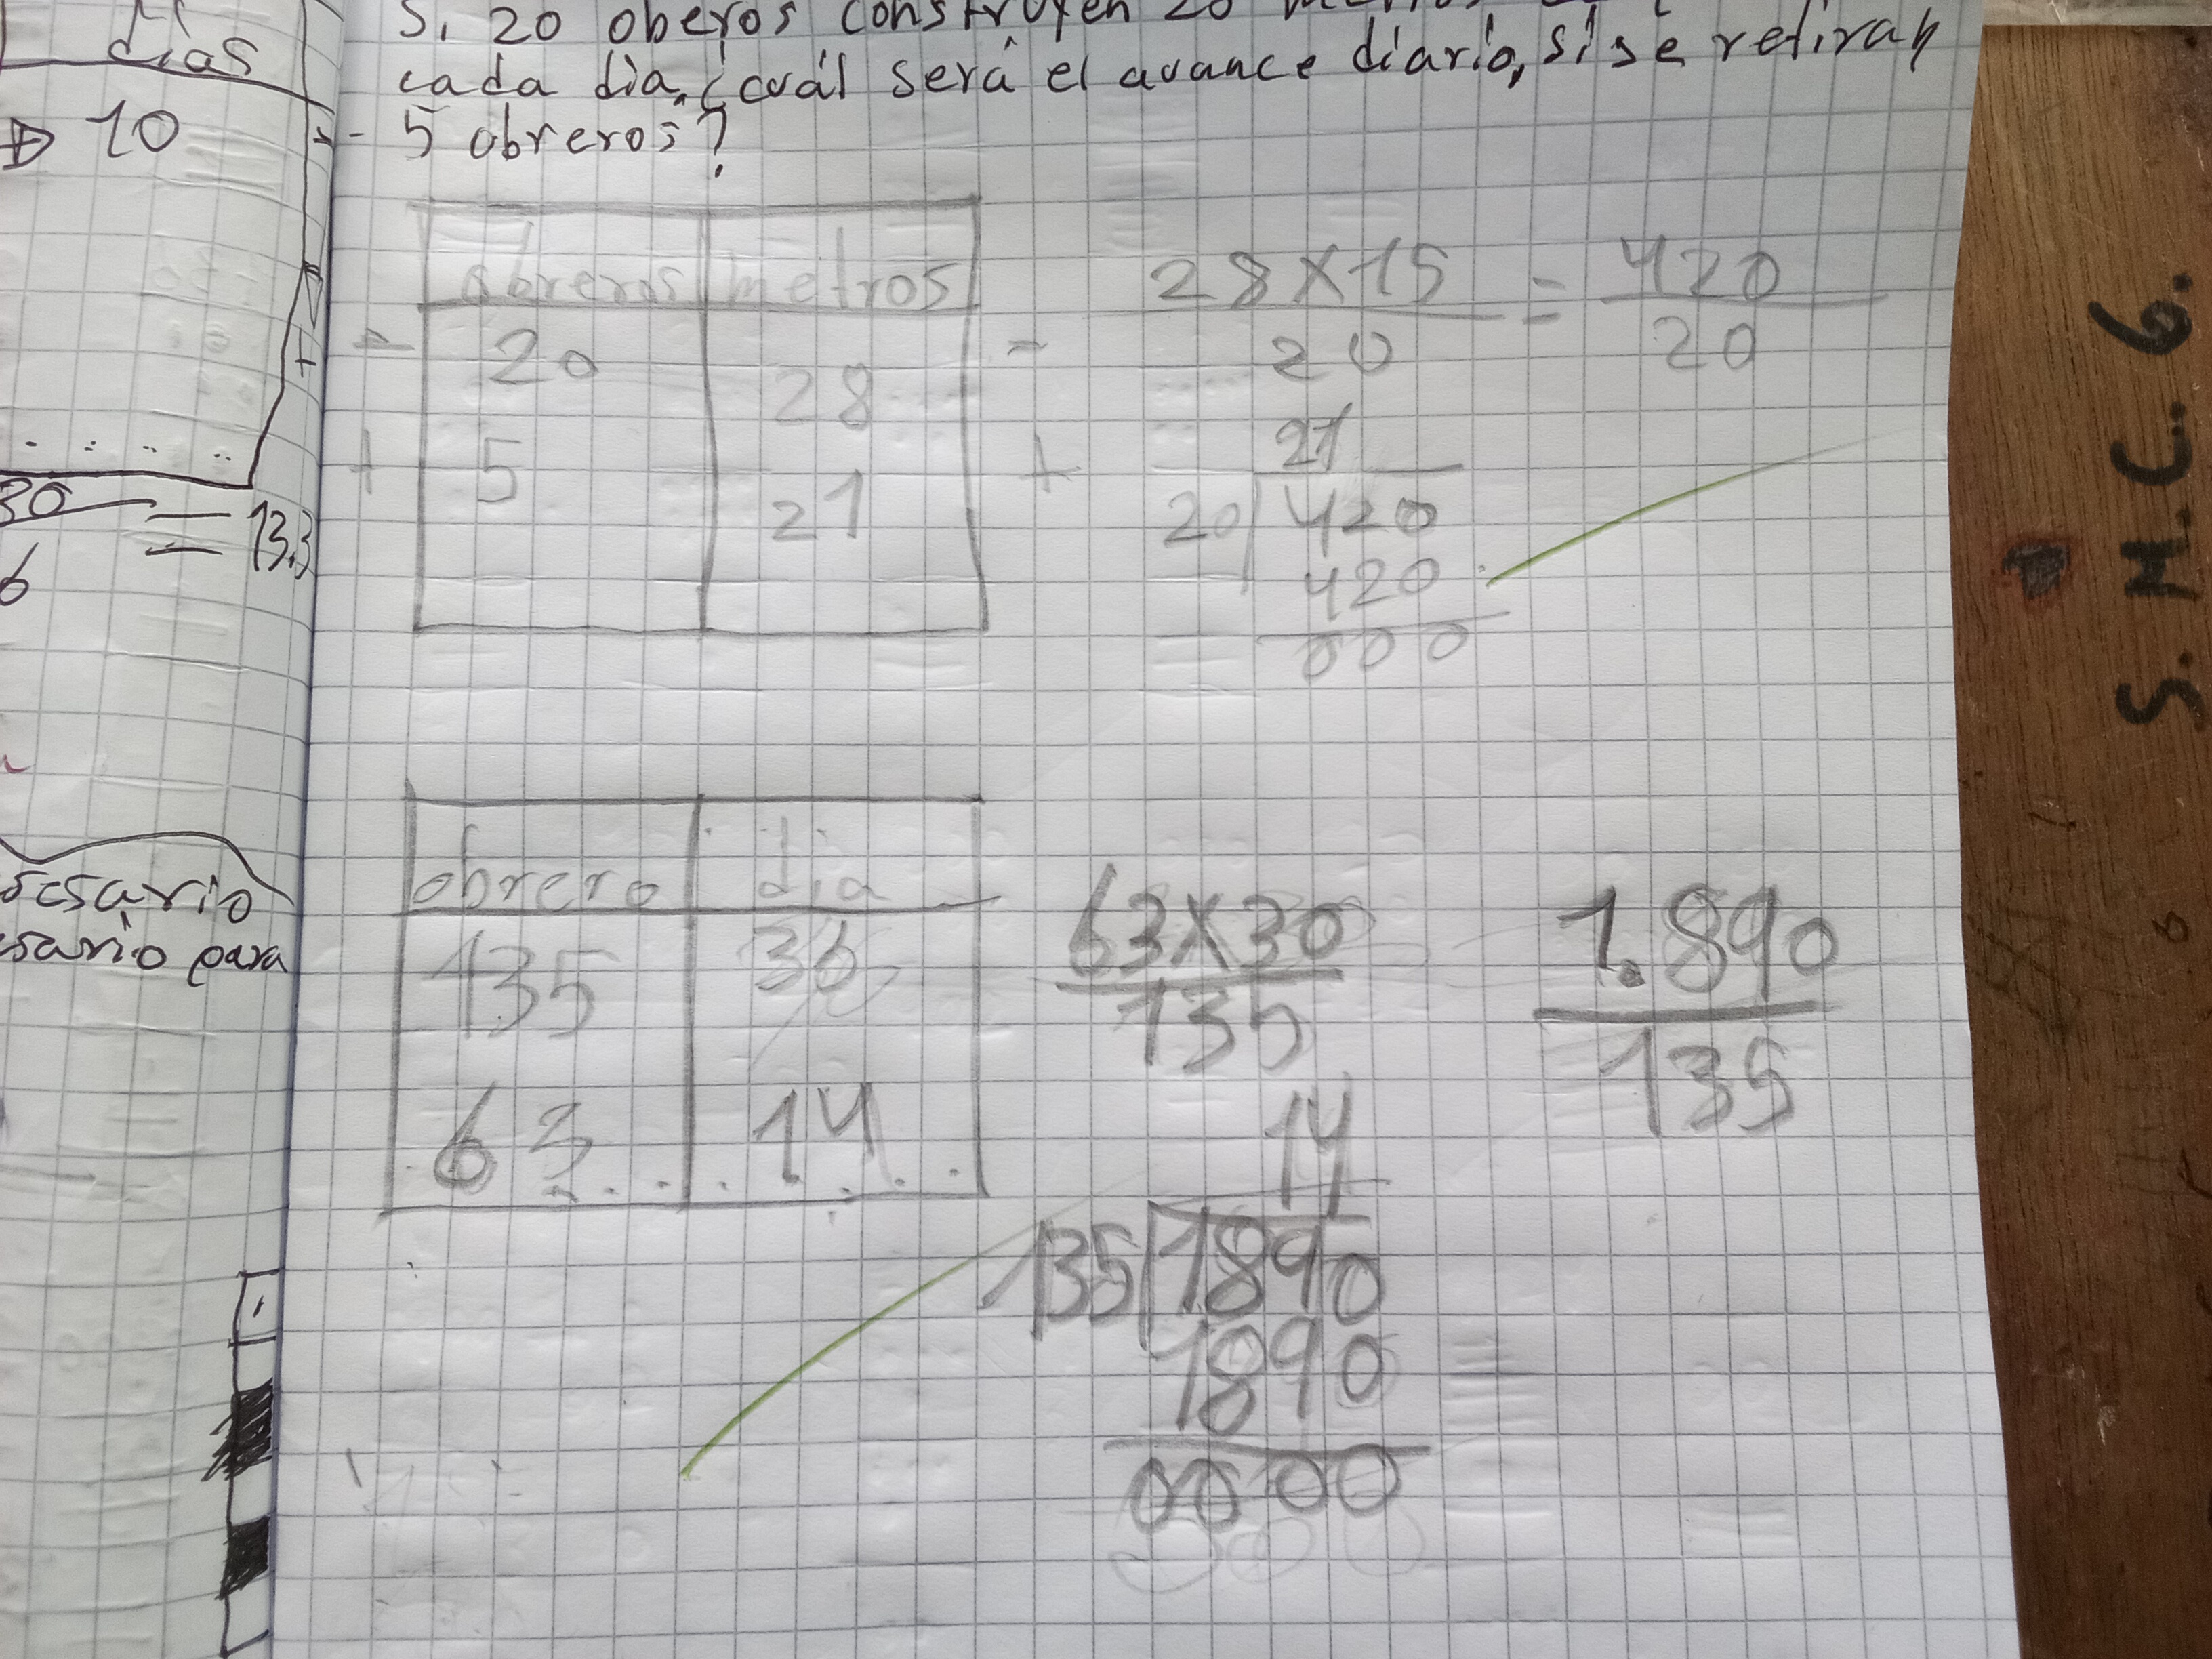 días
10
30
= 13.3
6
sario para
Si 20 oberos construyen
cada dia, ¿cuál será el avance diario, si se retiran
5 obreros?
obreros metros
- 20 28 -
+ 5 21 +
28 X 15 = 420
20 20
21
20 420
420
000
obrero dia
135 30
63 14
63 X 30 1.890
135 135
14
135 1890
1890
0000
S. M. C. 6.